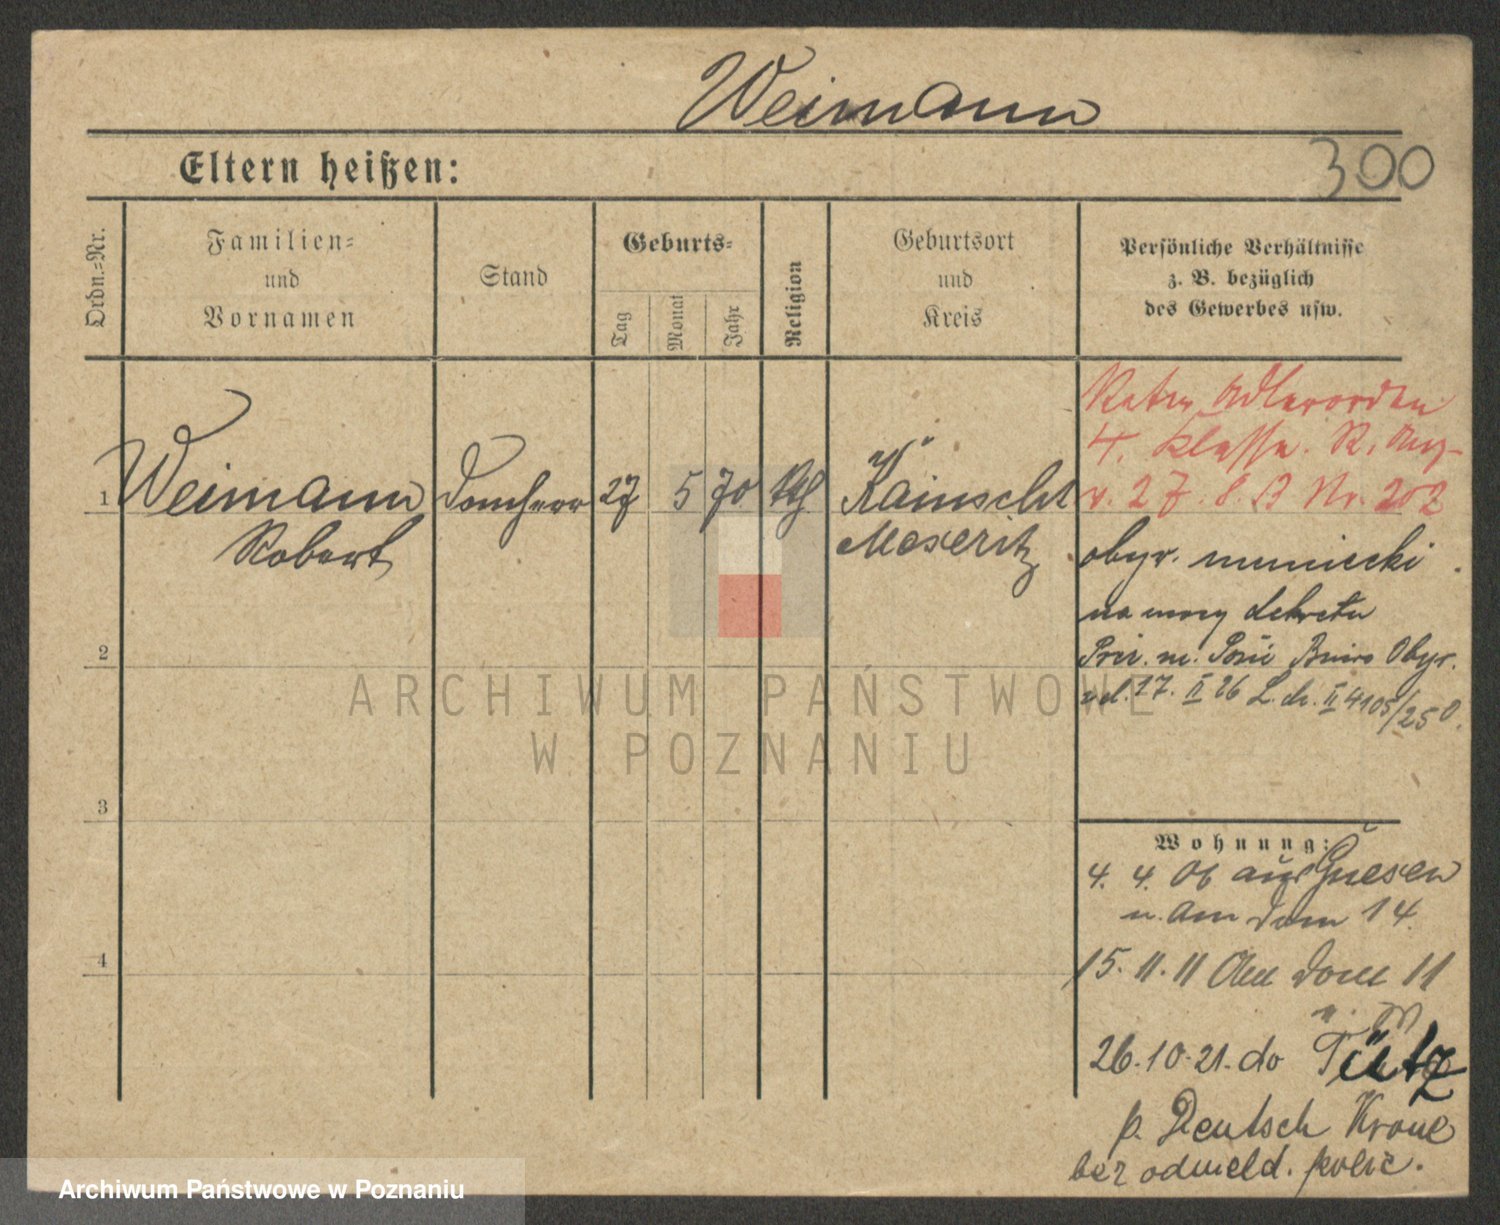 Weimann
Eltern heißen:
300
Ordn.=Nr.
Familien=
und
Vornamen
Stand
Geburts=
Tag
Monat
Jahr
Religion
Geburtsort
und
Kreis
Persönliche Verhältnisse
z. B. bezüglich
des Gewerbes usw.
1
Weimann
Robert
Domherr
27
5
70
kth
Kainscht
Meseritz
Roter Adlerorden
4. Klasse. R. Anz.
v. 27. 8. 13 Nr. 202
obyw. niemiecki
na mocy dekretu
Biuro Obyw.
z d. 17. II 26 L. dz. II 4105/25 O.
2
3
4
Wohnung:
4. 4. 06 aus Gnesen
n. Am Dom 14
15. 11. 11 Am Dom 11
26. 10. 21. do Tütz
p. Deutsch Krone
bez odmeld. polic.
ARCHIWUM PAŃSTWOWE
W POZNANIU
Archiwum Państwowe w Poznaniu